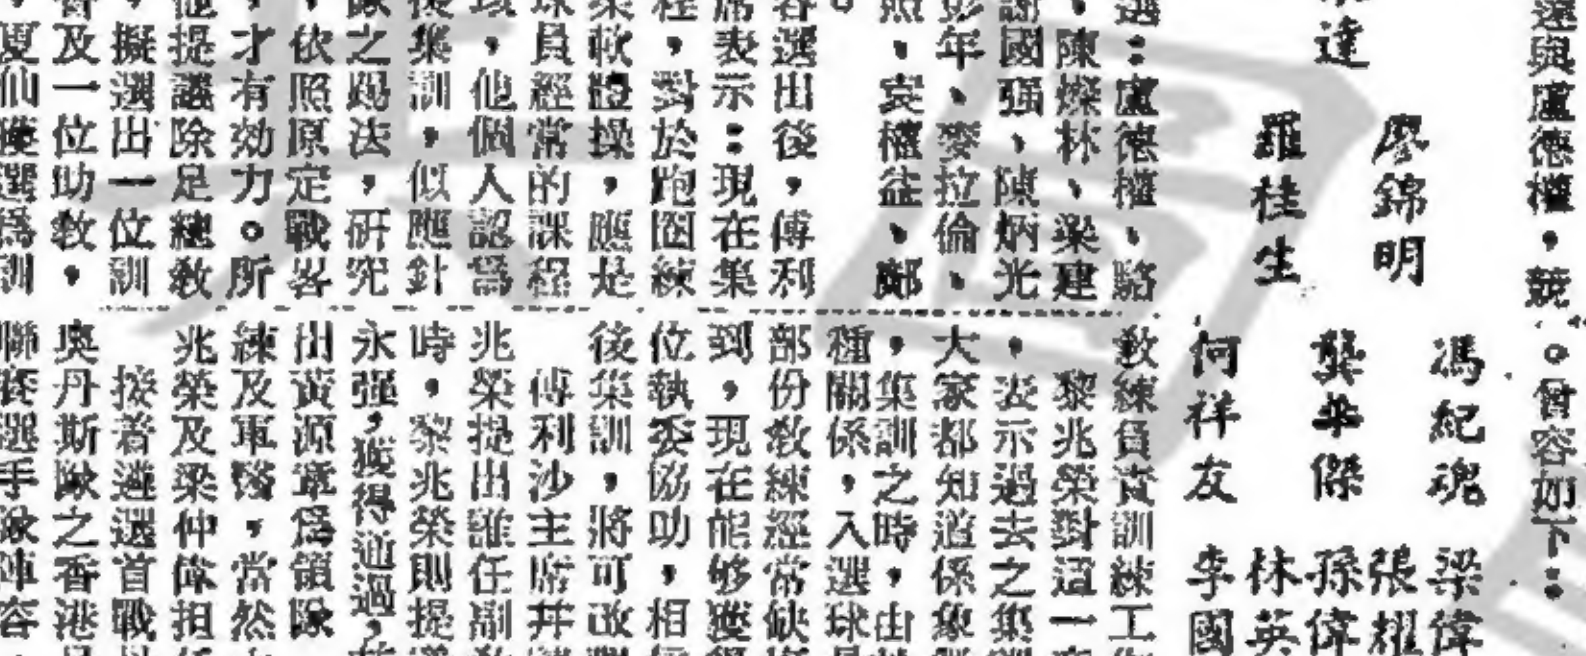 還與盧德權，競。會容如下：
達
廖錦明
羅桂生
馮紀魂
龔華傑
何祥友
梁偉
張耀
孫偉
林英
李國
選：盧德權、駱
、陳燦林、梁建
謝國强、陳炳光
彭年、麥拉倫、
照、袁權益、鄺
。
容選出後，傅利
席表示：現在集
程，對於跑圈練
柔軟體操，應是
球員經常的課程
，他個人認爲
後集訓，似應針
歐之踢法，研究
，依照原定戰畧
，才有効力。所
他提議除足總敎
，擬選出一位訓
及一位助敎，
，夏仙獲選爲訓
敎練負責訓練工
，黎兆榮對這一
，表示過去之集
大家都知道係象
，集訓之時，由
種關係，入選球
部份敎練經常缺
到，現在能够獲
位執委協助，相
後集訓，將可改
傅利沙主席幷
兆榮提出誰任副
時，黎兆榮則提
永强，獲得通過，
出黃源章爲領隊
練及軍醫，當然
兆榮及梁仲偉担
接着遴選首戰
奧丹斯歐之香港
聯賽選手隊陣容